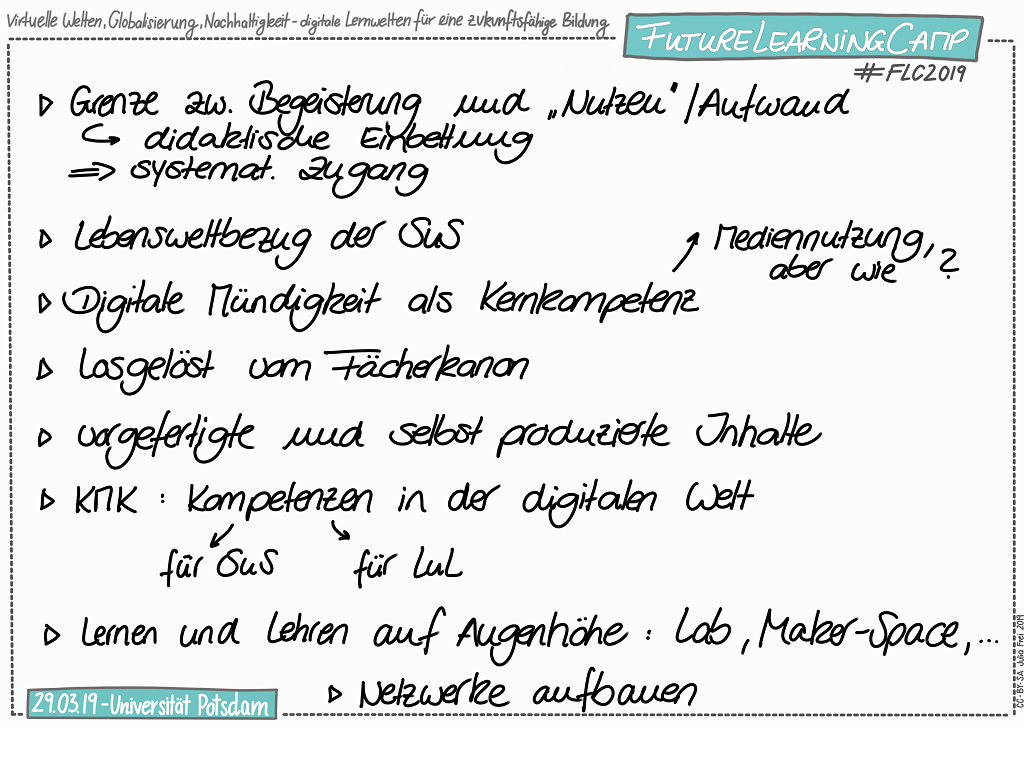 Virtuelle Welten, Globalisierung, Nachhaltigkeit - digitale Lernwelten für eine zukunftsfähige Bildung
FUTURELEARNINGCAMP
#FLC2019
▷ Grenze zw. Begeisterung und „Nutzen"/Aufwand
↪ didaktische Einbettung
⇒ systemat. Zugang
▷ Lebensweltbezug der SuS
↗ Mediennutzung,
aber wie ?
▷ Digitale Mündigkeit als Kernkompetenz
▷ Losgelöst vom Fächerkanon
▷ vorgefertigte und selbst produzierte Inhalte
▷ KMK : Kompetenzen in der digitalen Welt
für SuS für LuL
▷ Lernen und Lehren auf Augenhöhe : Lab, Maker-Space, ...
▷ Netzwerke aufbauen
29.03.19 - Universität Potsdam
CC-BY-SA Julia Frei 2019